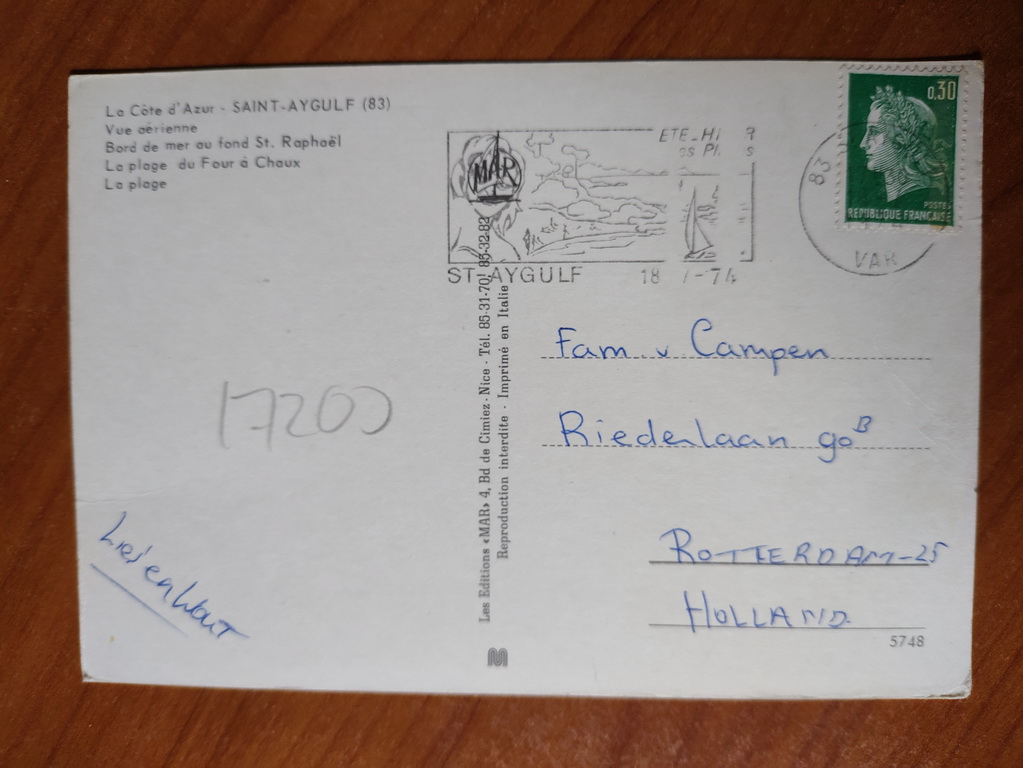 La Côte d'Azur - SAINT-AYGULF (83)
Vue aérienne
Bord de mer au fond St. Raphaël
La plage du Four à Chaux
La plage
MAR
ETE-HI
ST-AYGULF 18 -74
83
VAR
0,30
POSTES
REPUBLIQUE FRANÇAISE
Les Editions «MAR» 4, Bd de Cimiez - Nice - Tél. 85-31-70 / 85-32-82
Reproduction interdite - Imprimé en Italie
17200
Fam v Campen
Riederlaan 90B
ROTTERDAM-25
HOLLAND
5748